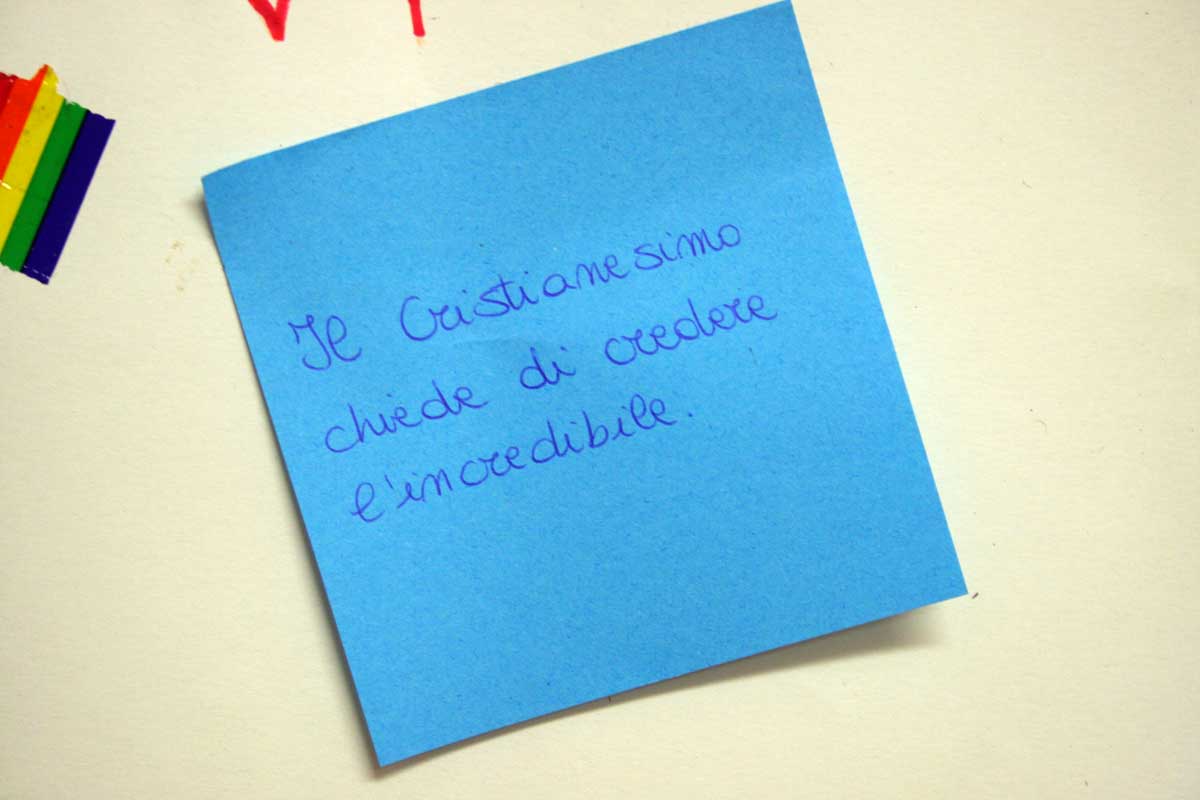 Il Cristianesimo
chiede di credere
l'incredibile.